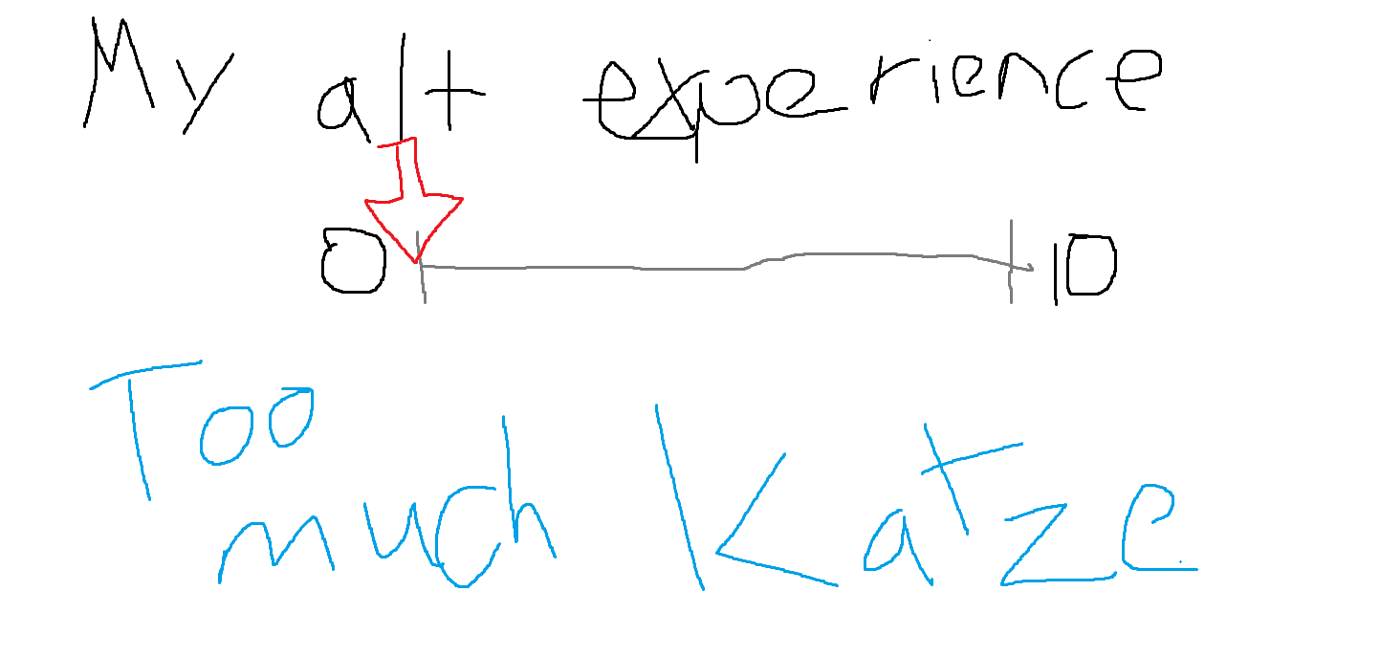 My alt experience
0 10
Too
much Katze